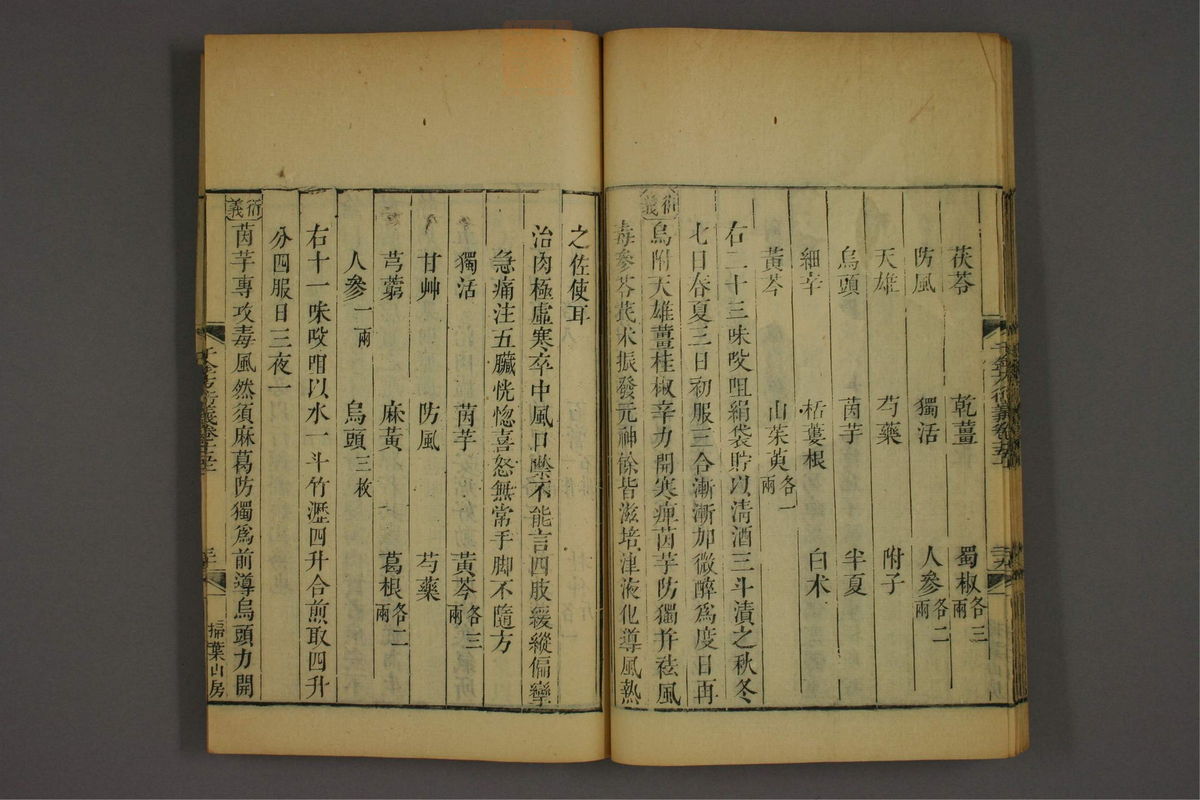 茯苓　乾薑　蜀椒各三兩
防風　獨活　人參各二兩
天雄　芍藥　附子
烏頭　茵芋　半夏
細辛　栝蔞根　白朮
黃芩　山茱萸各一兩
右二十三味㕮咀絹袋貯以清酒三斗漬之秋冬
七日春夏三日初服三合漸漸加微醉為度日再
衍義
烏附天雄薑桂椒辛力開寒痺茵芋防獨并袪風
毒參苓芪朮振發元神餘皆滋培津液化導風熱
之佐使耳
治肉極虛寒卒中風口噤不能言四肢緩縱偏攣
急痛注五臟恍惚喜怒無常手脚不隨方
獨活　茵芋　黃芩各三兩
甘艸　防風　芍藥
芎藭　麻黃　葛根各二兩
人參一兩　烏頭三枚
右十一味㕮咀以水一斗竹瀝四升合煎取四升
分四服日三夜一
衍義
茵芋專攻毒風然須麻葛防獨爲前導烏頭力開
千金方衍義卷十五上
掃葉山房